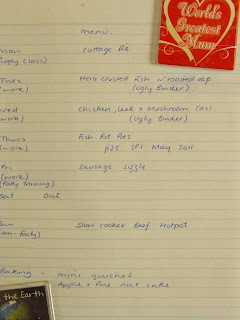 World's
Greatest
Mum
menu.
Mon
Cottage Pie
(class)
Tues
Herb Crusted Fish w roasted
(work)
(Ugly Binder)
Wed
Chicken, Leek + Mushroom Cass.
(work)
(Ugly Binder)
Thurs
Fish Pot Pies
(work)
p25 SFI May 2011
Fri
Sausage Sizzle
(work)
(footy training)
Sat Out
Sun
Slow cooker Beef Hotpot
(am-footy)
Baking - mini quiches
Apple + Pine nut cake.
the Earth